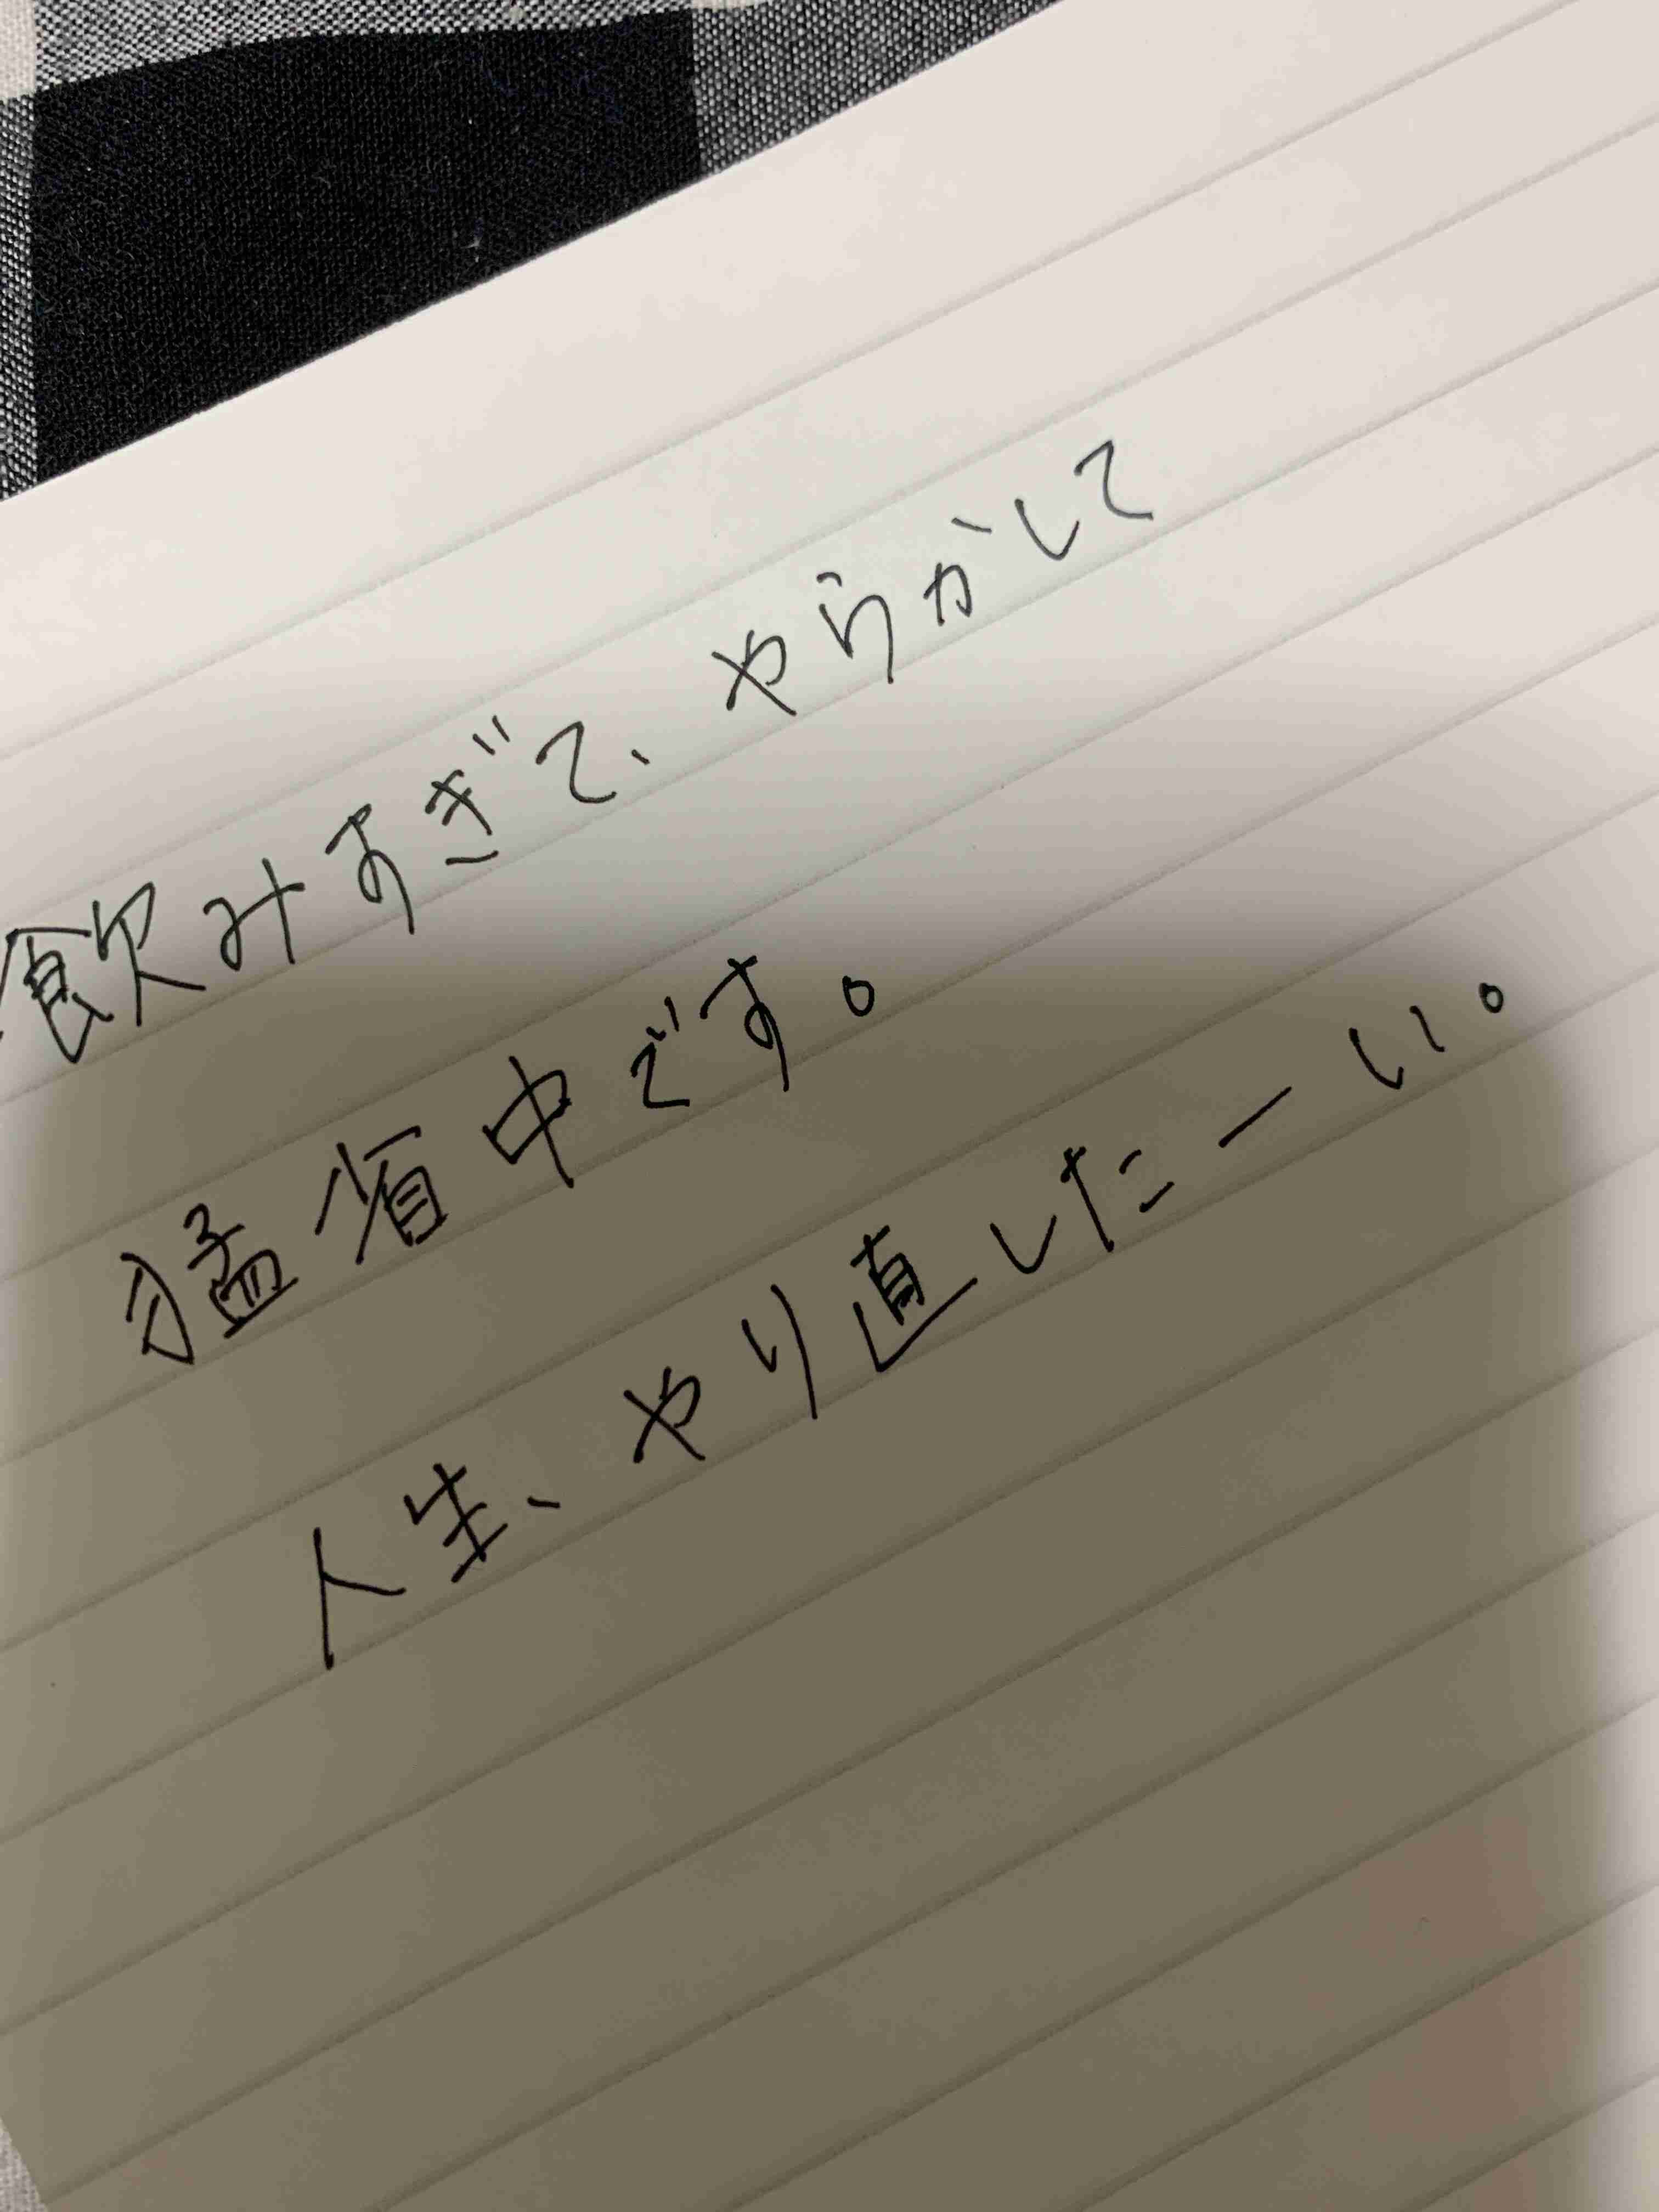 飲みすぎて、やらかして
猛省中です。
人生、やり直したーい。